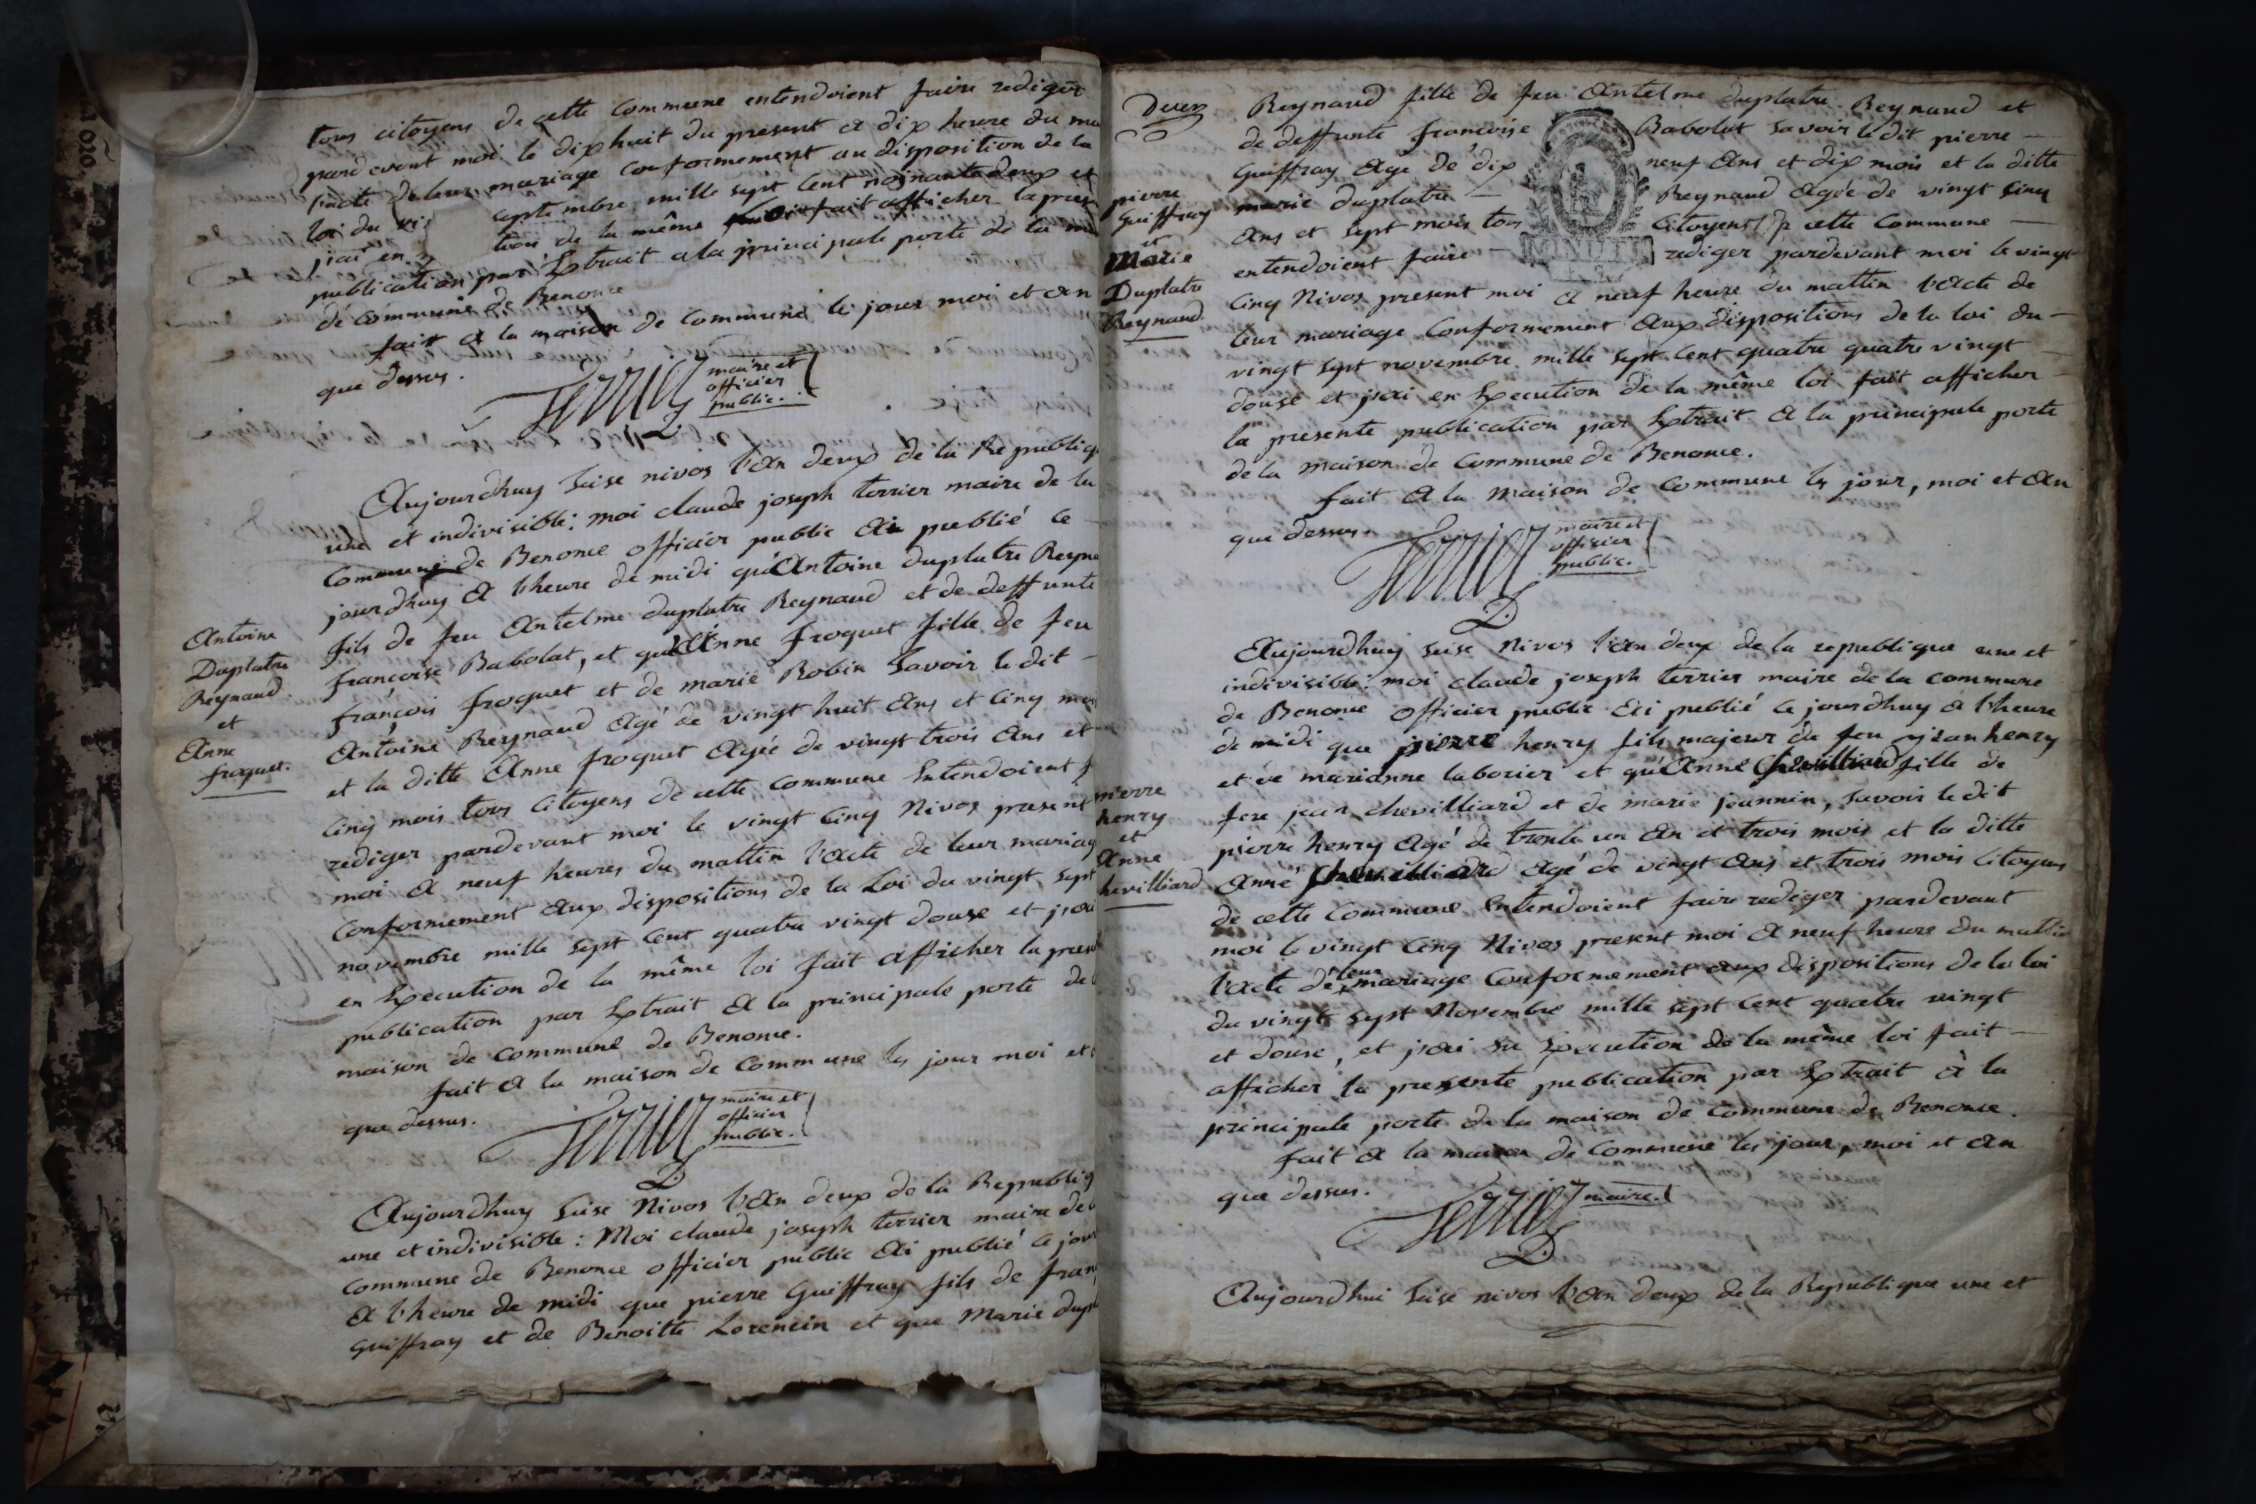 tous citoyens de cette Commune entendoient faire rediger
pard evant moi le dixhuit du present a dix heure du ma
l'acte de leur mariage Conformement au disposition de la
loi du septembre mille sept Cent nonante deux et
j'ai en tion de la même fait afficher la pres
publication par Extrait a la principale porte de la
de commune de Benonce
fait a la maison de Commune le jour moi et an
que dessus.
Terrier maire et
officier
public.
Aujourdhuy Saise nivos l'an deux de la Republiq
une et indivisible: moi claude joseph terrier maire de la
Commune de Benonce officier public ai publié ce
jourdhuy a l'heure de midi qu'Antoine duplatre Reyna
fils de feu Antelme duplatre Reynaud et de deffunte
francoise Babolat, et qu'Anne froquet fille de feu
françois froquet et de marie Robin Savoir le dit
Antoine Reynaud agé de vingt huit ans et Cinq moi
et la ditte Anne froquet agée de vingt trois ans et
Cinq mois tous Citoyens de cette Commune Entendoient f
rediger pardevant moi le vingt Cinq Nivos present
moi a neuf heures du mattin l'acte de leur mariag
Conformement aux dispositions de la Loi du vingt sept
novembre mille sept Cent quatre vingt douse et j'ai
en Execution de la même loi fait afficher la prese
publication par Extrait a la principale porte de l
maison de Commune de Benonce.
fait a la maison de Commune les jour moi et
que dessus.
Terrier maire et
officier
public.
Antoine
Duplatre
Reynaud.
et
Anne
froquet.
Aujourdhuy Saise Nivos l'an deux de la Republiq
une et indivisible: Moi claude joseph terrier maire de
Commune de Benonce officier public ai publié ce jour
a l'heure de midi que pierre Guiffray fils de fran
Guiffray et de Benoitte Lorencin et que Marie dupla
Deux
Reynaud fille de feu Antelme duplatre Reynaud et
de deffunte francoise Babolat savoir le dit pierre
Guiffray agé de dix neuf ans et dix mois et la ditte
marie duplatre Reynaud agée de vingt Cinq
ans et sept mois tous Citoyens de cette Commune
entendoient faire rediger pardevant moi le vingt
Cinq Nivos present moi a neuf heure du mattin l'acte de
leur mariage Conformement aux dispositions de la loi du
vingt sept novembre mille sept Cent quatre quatre vingt
douse et j'ai en Execution de la même loi fait afficher
la presente publication par Extrait a la principale porte
de la maison de Commune de Benonce.
fait a la maison de Commune les jour, moi et an
que dessus.
Terrier maire et
officier
public.
pierre
Guiffray
et
Marie
Duplatre
Reynaud.
Aujourdhuy Saise Nivos l'an deux de la republique une et
indivisible: moi claude joseph terrier maire de la commune
de Benonce officier public ai publié ce jourdhuy a l'heure
de midi que pierre henry fils majeur de feu jean henry
et de marianne laborier et qu'Anne Chevilliard fille de
feu jean chevilliard et de marie jeannin, savoir le dit
pierre henry agé de trente un an et trois mois et la ditte
Anne Chevilliard agé de vingt ans et trois mois Citoyens
de cette Commune Entendoient faire rediger pardevant
moi le vingt Cinq Nivos present moi a neuf heure du mattin
l'acte de leur mariage Conformement aux dispositions de la loi
du vingt sept Novembre mille sept Cent quatre vingt
et douse, et j'ai en Execution de la même loi fait
afficher la presente publication par Extrait à la
principale porte de la maison de Commune de Benonce.
fait a la maison de Commune les jour, moi et an
que dessus.
Terrier maire.
pierre
henry
et
Anne
hevilliard
Aujourdhui Saise nivos l'an deux de la Republique une et